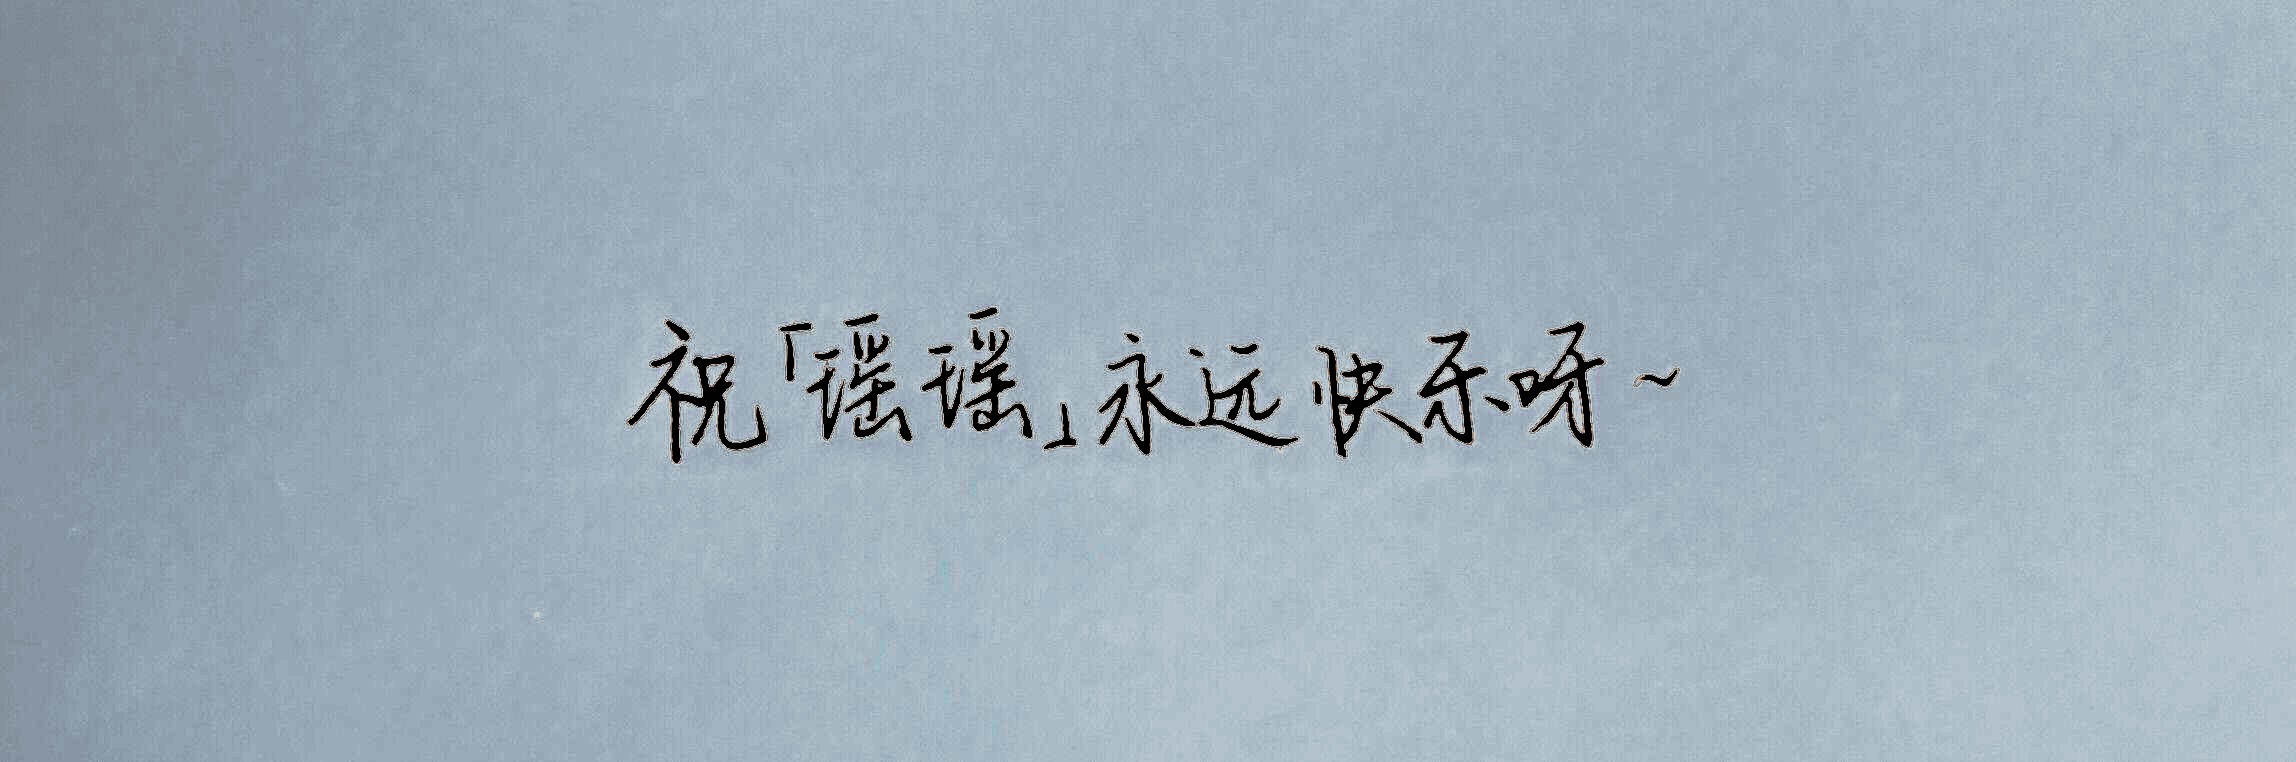 祝「瑶瑶」永远快乐呀~